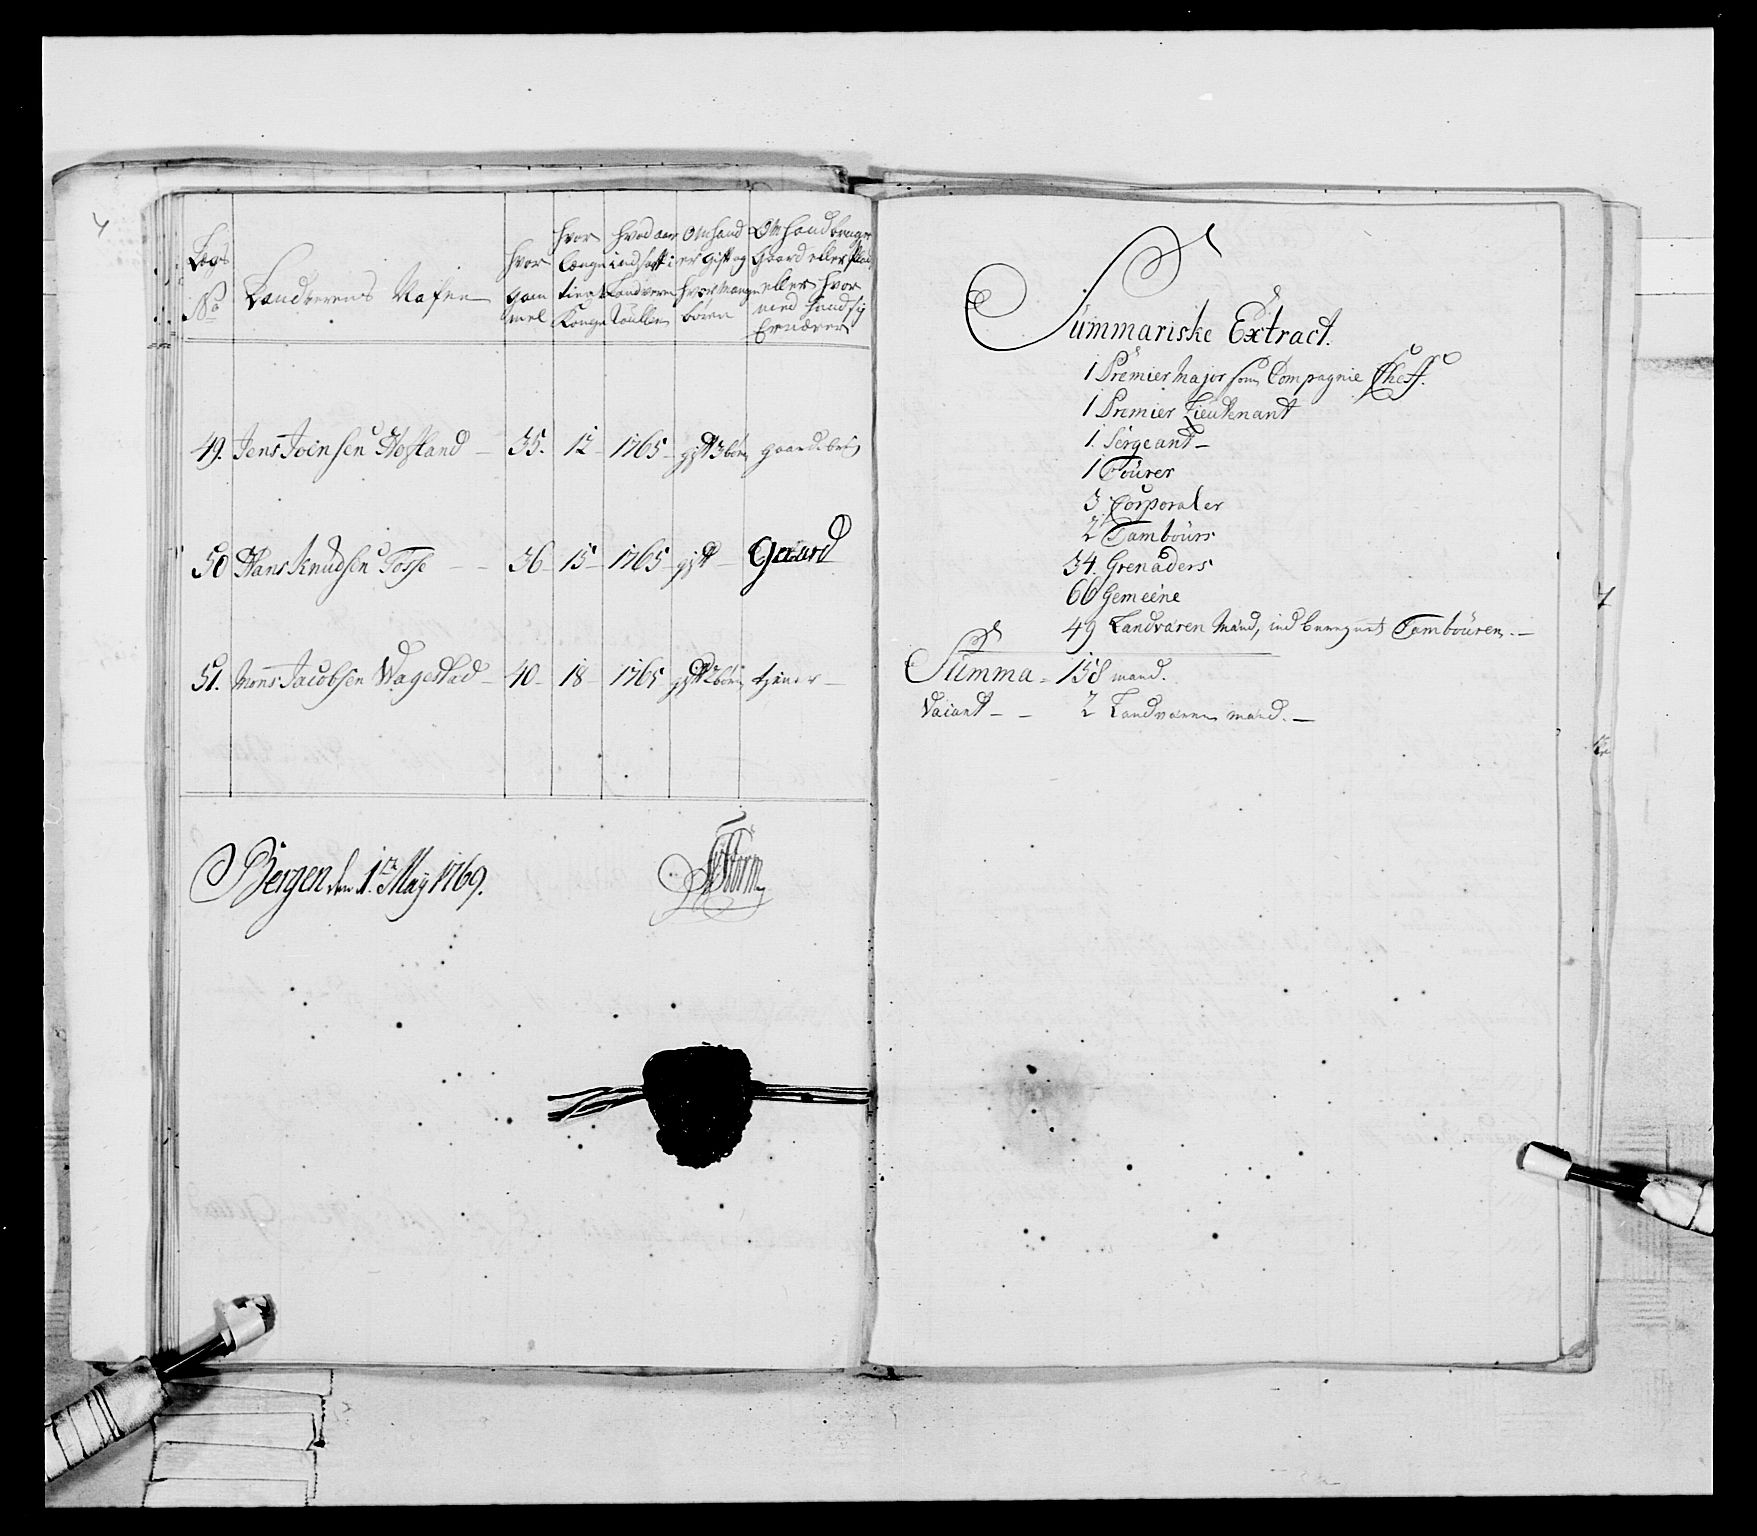 Lægs No
Landverens Nafne
hvor gammel
hvor længe tient Kongen
hvad aar indsatt i Landværn Roullen
Om hand er Gift og hvor mange børn
Om hand bruger Gaard eller Plads eller hvor med hand sig Ernærer
49. Jens Joensen Hofland – 35. 12 – 1765 – gift 3 børn gaardebrug
50 Hans Knudsen Tosse – – 36 – 15 – 1765 – gift – Gaard
51. Mons Jacobsen Wagestad – 40 – 18 – 1765 gift 2 børn tjener –
Bergen den 1te Maÿ 1769.
Storm
Summariske Extract.
1 Premier Major som Compagnie Cheff.
1 Premier Lieutenant
1. Sergeant –
1 Fourer
3 Corporaler
2 Tambours
34. Grenaders
66 Gemeene
49 Landværen Mænd, indberegnet Tambouren. –
Summa – 158 mand.
Vacant – – 2 Landværns mænd. –